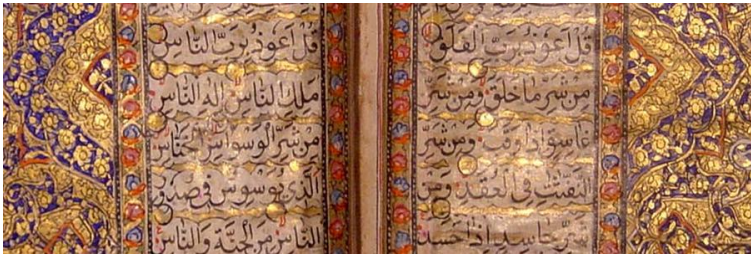 قُلْ اَعُوذُ بِرَبِّ الفَلَقِ
مِنْ شَرِّ مَا خَلَقَ وَمِنْ شَرِّ
غَاسِقٍ اِذَا وَقَبَ وَمِنْ شَرِّ
النَّفّٰثٰتِ فِى الْعُقَدِ وَمِنْ
شَرِّ حَاسِدٍ اِذَا حَسَدَ
قُلْ اَعُوذُ بِرَبِّ النَّاسِ
مَلِكِ النَّاسِ اِلٰهِ النَّاسِ
مِنْ شَرِّ الْوَسْوَاسِ الْخَنَّاسِ
الَّذِى يُوَسْوِسُ فِى صُدُورِ
النَّاسِ مِنَ الْجِنَّةِ وَالنَّاسِ